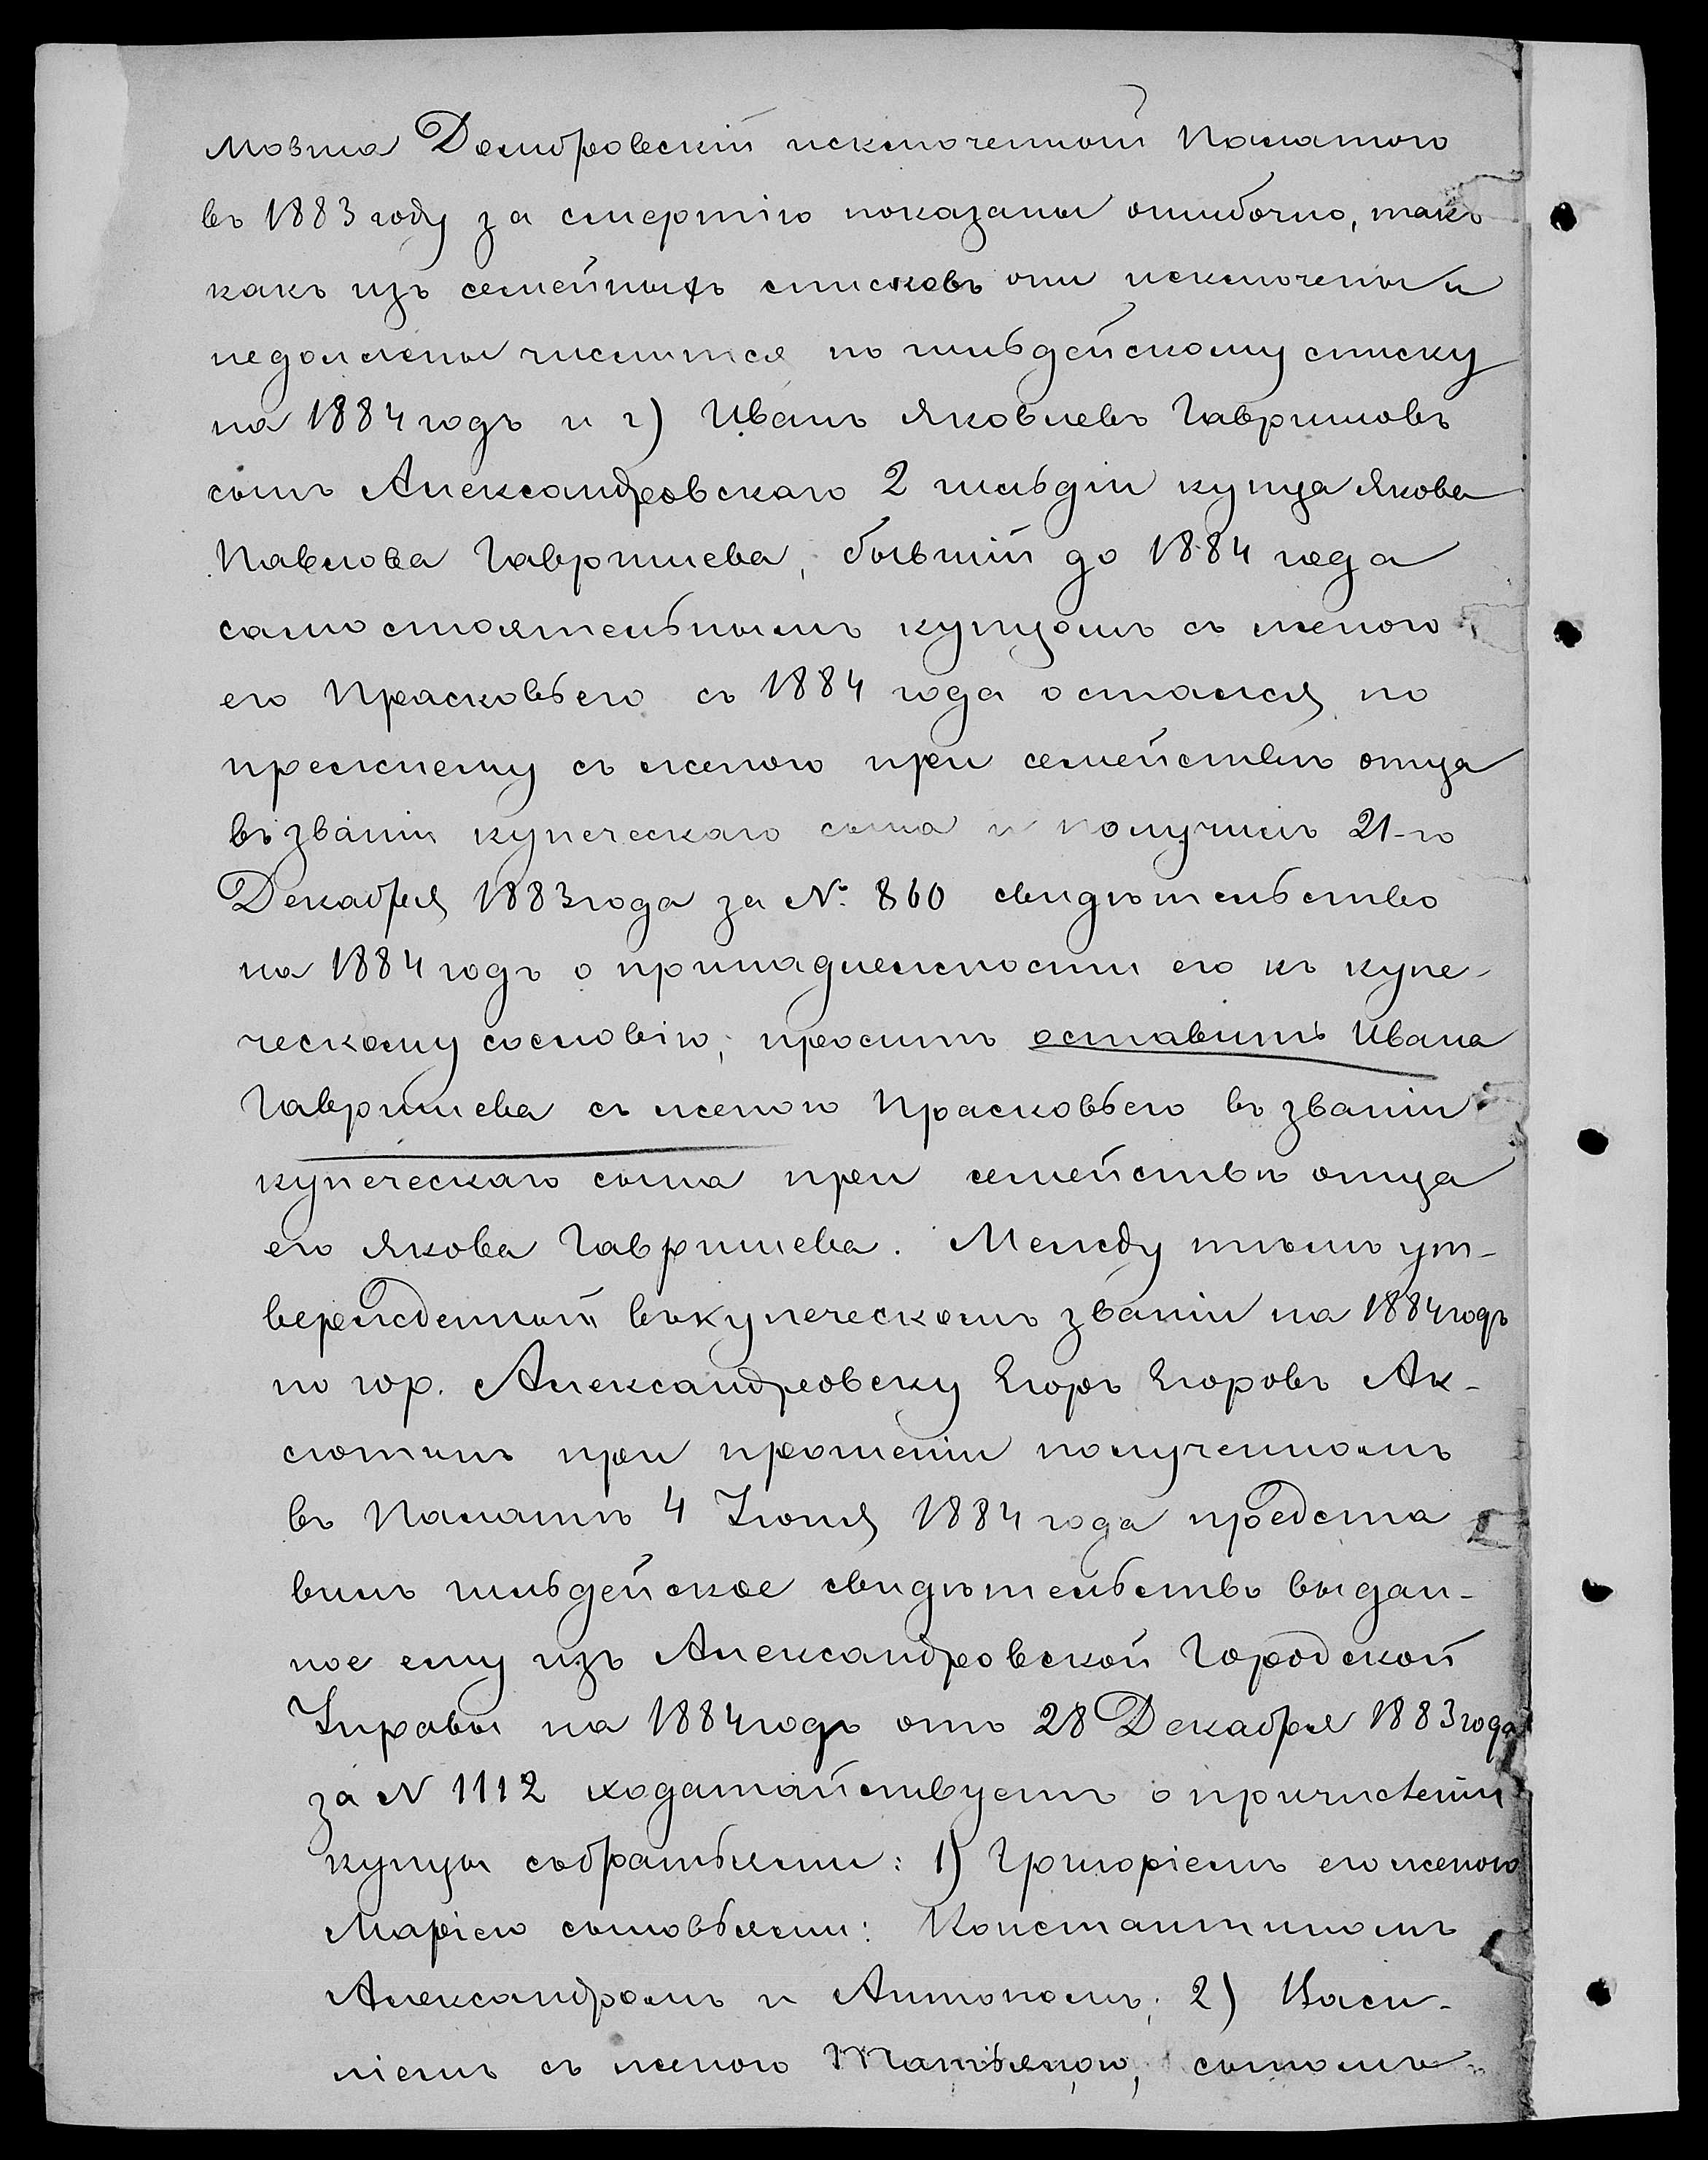 мозма Домбровскій исключенной Палатою
въ 1883 году за смертію показаны ошибочно, такъ
какъ изъ семейныхъ списковъ они исключены и
недолжны числится по гильдейскому списку
на 1884 годъ и г) Иванъ Яковлевъ Гавришовъ
сынъ Александровскаго 2 гильдіи купца Якова
Павлова Гавришева, бывшій до 1884 года
самостоятельнымъ купцомъ съ женою
его Прасковьею съ 1884 года остался по
прежнему съ женою при семействѣ отца
въ званіи купеческаго сына и получилъ 21-го
Декабря 1883 года за №. 860 свидѣтельство
на 1884 годъ о принадлежности его къ купе-
ческому сословію; проситъ оставить Ивана
Гавришева съ женою Прасковьею въ званіи
купеческаго сына при семействѣ отца
его Якова Гавришева. Между тѣмъ ут-
вержденный въ купеческомъ званіи на 1884 годъ
по гор. Александровску Егоръ Егоровъ Ак-
сютинъ при прошеніи полученномъ
въ Палатѣ 4 Іюня 1884 года предста
вилъ гильдейское свидѣтельство выдан-
ное ему изъ Александровской Городской
Управы на 1884 годъ отъ 28 Декабря 1883 года
за N 1112 ходатайствуетъ о причисленіи
купцы съ братьями: 1) Григоріемъ его женою
Маріею сыновьями: Константиномъ
Александромъ и Антономъ; 2) Васи-
ліемъ съ женою Татьяною, сыномъ